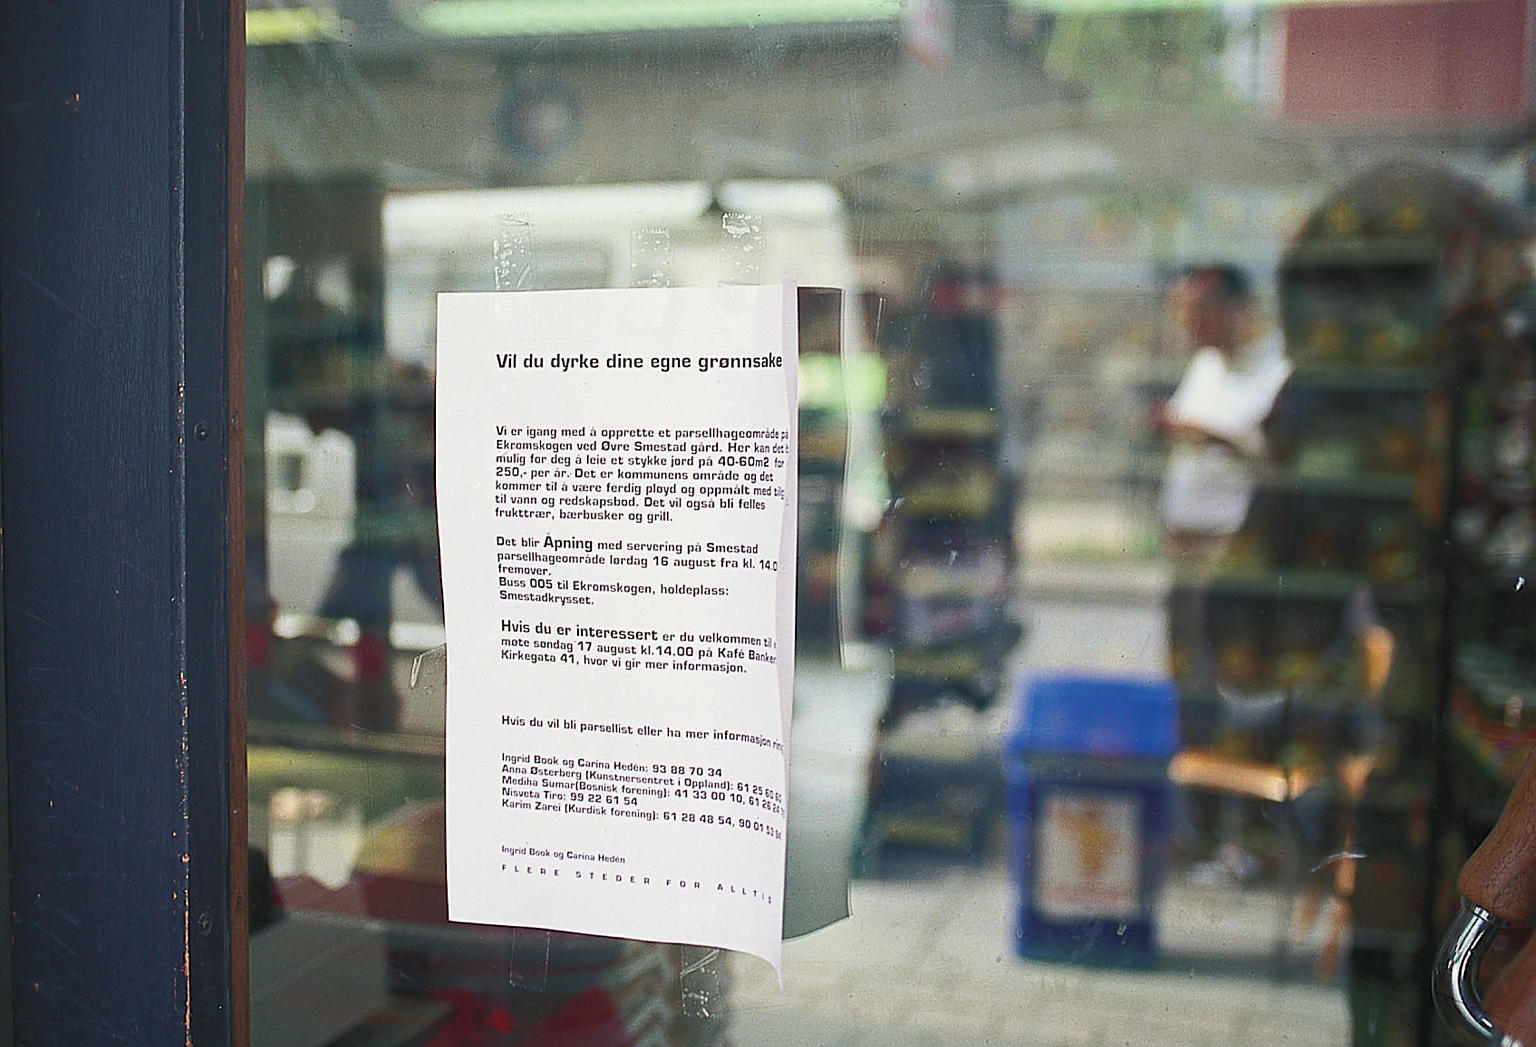 Vil du dyrke dine egne grønnsake
Vi er igang med å opprette et parsellhageområde på
Ekromskogen ved Øvre Smestad gård. Her kan det
mulig for deg å leie et stykke jord på 40-60m2 for
250,- per år. Det er kommunens område og det
kommer til å være ferdig pløyd og oppmålt med
til vann og redskapsbod. Det vil også bli felles
frukttrær, bærbusker og grill.
Det blir Åpning med servering på Smestad
parsellhageområde lørdag 16 august fra kl. 14.0
fremover.
Buss 005 til Ekromskogen, holdeplass:
Smestadkrysset.
Hvis du er interessert er du velkommen til
møte søndag 17 august kl.14.00 på Kafé Banken
Kirkegata 41, hvor vi gir mer informasjon.
Hvis du vil bli parsellist eller ha mer informasjon ring
Ingrid Book og Carina Hedén: 93 88 70 34
Anna Østerberg (Kunstnersentret i Oppland): 61 25 60 60
Mediha Sumar(Bosnisk forening): 41 33 00 10, 61 26 24
Nisveta Tiro: 99 22 61 54
Karim Zarei (Kurdisk forening): 61 28 48 54, 90 01 53
Ingrid Book og Carina Hedén
FLERE STEDER FOR ALLTIG